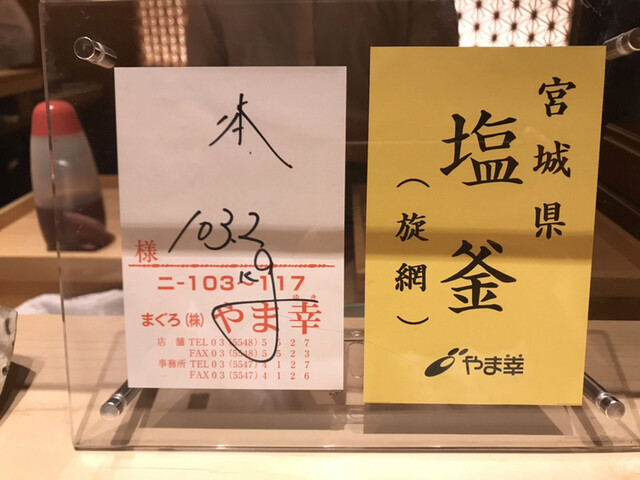 本
103.2
kg
様
ニ-103~117
まぐろ(株) やま幸
ゆき
店 舗 TEL 03(5548)5527
FAX 03(5548)5523
事務所 TEL 03(5547)4127
FAX 03(5547)4126
宮城県
塩釜
(旋網)
やま幸